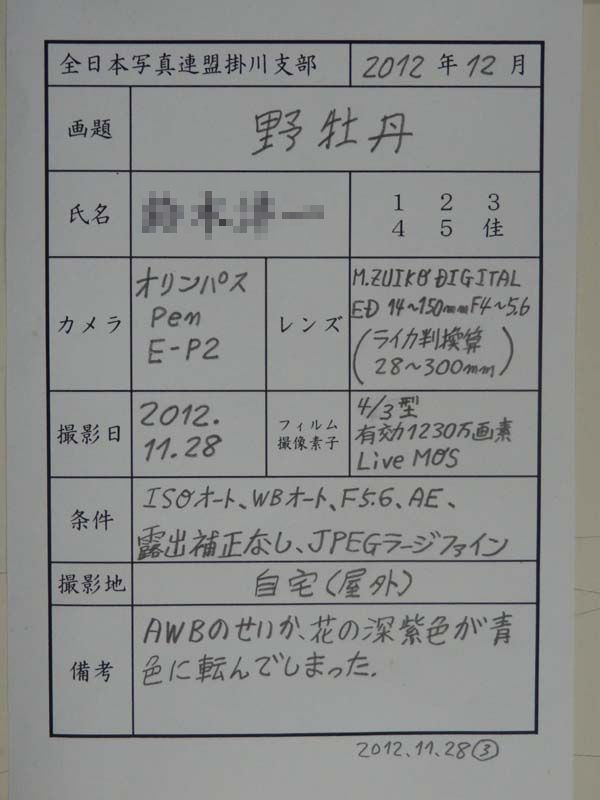 全日本写真連盟掛川支部 2012年12月
画題 野牡丹
氏名
1 2 3
4 5 佳
カメラ
オリンパス
Pen
E-P2
レンズ
M.ZUIKO DIGITAL
ED 14~150mm F4~5.6
(ライカ判換算
28~300mm)
撮影日
2012.
11.28
フィルム
撮像素子
4/3型
有効1230万画素
Live MOS
条件
ISOオート、WBオート、F5.6、AE、
露出補正なし、JPEGラージファイン
撮影地 自宅(屋外)
備考
AWBのせいか、花の深紫色が青
色に転んでしまった.
2012.11.28③